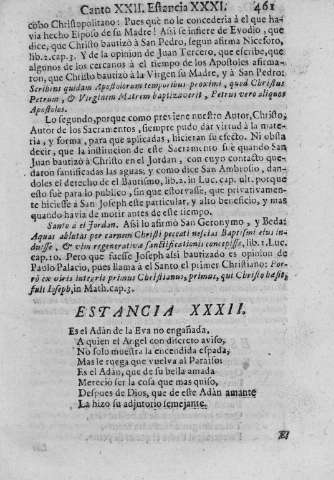 Canto XXII. Estancia XXXI. 461
cobo Christopolitano: Pues què no le concederia à el que ha-
via hecho Esposo de su Madre! Asi se infiere de Evodio, que
dice, que Christo bautizò à San Pedro, segun afirma Niceforo,
lib.2.cap.3. Y de la opinion de Juan Tercero, que escribe, que
algunos de los cercanos à el tiempo de los Apostoles afirma-
ron, que Christo bautizò à la Virgen su Madre, y à San Pedro:
Scribunt quidam Apostolorum temporibus proximi, quod Christus
Petrum, & Virginem Matrem baptizaverit, Petrus vero aliquos
Apostolos.
Lo segundo, porque como previene nuestro Autor, Christo,
Autor de los Sacramentos, siempre pudo dar virtud à la mate-
ria, y forma, para que aplicadas, hicieran su efecto. Ni obsta
decir, que la institucion de este Sacramento fuè quando San
Juan bautizò à Christo en el Jordan, con cuyo contacto que-
daron santificadas las aguas; y como dice San Ambrosio, dan-
doles el derecho de el Bautismo, lib.2. in Luc. cap. ult. porque
esto fuè para lo publico, sin que estorvasse, que privativamen-
te hiciesse à San Joseph este particular, y alto beneficio, y mas
quando havia de morir antes de este tiempo.
Santo à el Jordan. Asi lo afirmò San Geronymo, y Beda:
Aquas ablutas per carnem Christi peccati nescias Baptismi eius in-
duisse, & vim regenerativæ sanctificationis concepisse, lib. 1. Luc.
cap.10. Pero que fuesse Joseph alsi bautizado es opinion de
Paulo Palacio, pues llama à el Santo el primer Christiano: Por-
rò ex viris integris primus Christianus, primus, qui Christo hæsit,
fuit Ioseph, in Math.cap.3.
ESTANCIA XXXII.
Es el Adàn de la Eva no engañada,
A quien el Angel con discreto aviso,
No solo muestra la encendida espada,
Mas le ruega que vuelva al Paraiso:
Es el Adàn, que de su bella amada
Mereciò ser la cosa que mas quiso,
Despues de Dios, que de este Adàn amante
La hizo su adjutorio semejante.
El